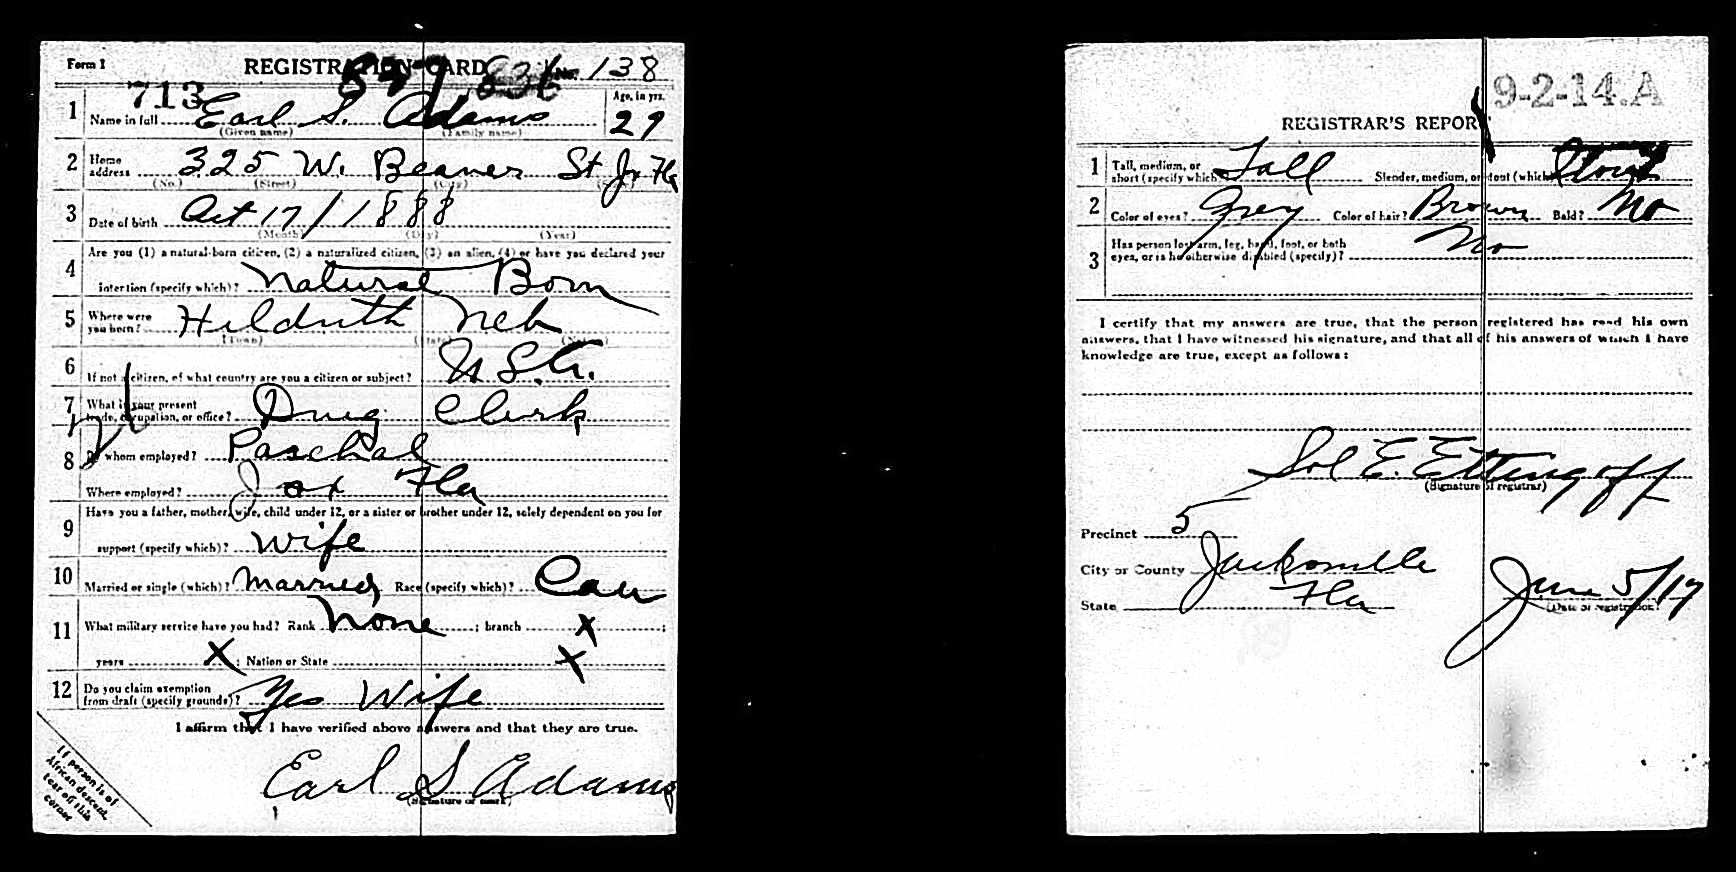 Form 1 REGISTRATION CARD No. 138
713
Age, in yrs.
1 Name in full Earl S. Adams 29
(Given name) (Family name)
2 Home address 325 W. Beaver St Jx Fla
(No.) (Street) (City)
3 Date of birth Oct 17/1888
(Month) (Day) (Year)
4 Are you (1) a natural-born citizen, (2) a naturalized citizen, (3) an alien, (4) or have you declared your
intention (specify which)? Natural Born
5 Where were you born? Hildruth Neb
(Town) (State) (Nation)
6 If not a citizen, of what country are you a citizen or subject? U.S.A.
7 What is your present trade, occupation, or office? Drug Clerk
8 By whom employed? Paschal
Where employed? Jax Fla
9 Have you a father, mother, wife, child under 12, or a sister or brother under 12, solely dependent on you for
support (specify which)? Wife
10 Married or single (which)? Married Race (specify which)? Cau
11 What military service have you had? Rank None ; branch X ;
years X ; Nation or State X
12 Do you claim exemption from draft (specify grounds)? Yes Wife
I affirm that I have verified above answers and that they are true.
Earl S Adams
(Signature or mark)
If person is of
African descent,
tear off this
corner
9-2-14.A
REGISTRAR'S REPORT
1 Tall, medium, or short (specify which)? Tall Slender, medium, or stout (which)? Stout
2 Color of eyes? Grey Color of hair? Brown Bald? No
3 Has person lost arm, leg, hand, foot, or both
eyes, or is he otherwise disabled (specify)? No
I certify that my answers are true, that the person registered has read his own
answers, that I have witnessed his signature, and that all of his answers of which I have
knowledge are true, except as follows:
Sol E. Ettingoff
(Signature of registrar)
Precinct 5
City or County Jacksonville
State Fla June 5/17
(Date of registration)